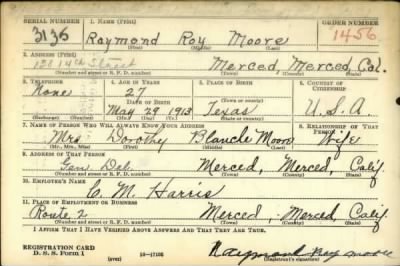 SERIAL NUMBER 1. NAME (Print) ORDER NUMBER
3136 Raymond Roy Moore 1456
(First) (Middle) (Last)
2. ADDRESS (Print)
128 14th Street Merced, Merced, Cal.
(Number and street or R. F. D. number) (Town) (County) (State)
3. TELEPHONE 4. AGE IN YEARS 5. PLACE OF BIRTH 6. COUNTRY OF CITIZENSHIP
None 27 Texas U.S.A.
DATE OF BIRTH (Town or county)
May 29 1913
(Exchange) (Number) (Mo.) (Day) (Yr.) (State or country)
7. NAME OF PERSON WHO WILL ALWAYS KNOW YOUR ADDRESS 8. RELATIONSHIP OF THAT PERSON
Mrs Dorothy Blanche Moore Wife
(Mr., Mrs., Miss) (First) (Middle) (Last)
9. ADDRESS OF THAT PERSON
Gen Del. Merced, Merced, Calif
(Number and street or R. F. D. number) (Town) (County) (State)
10. EMPLOYER'S NAME
C. M. Harris
11. PLACE OF EMPLOYMENT OR BUSINESS
Route 2 Merced, Merced Calif.
(Number and street or R. F. D. number) (Town) (County) (State)
I AFFIRM THAT I HAVE VERIFIED ABOVE ANSWERS AND THAT THEY ARE TRUE.
REGISTRATION CARD
D. S. S. Form 1 (over) 16—17105 Raymond Roy Moore
(Registrant's signature)